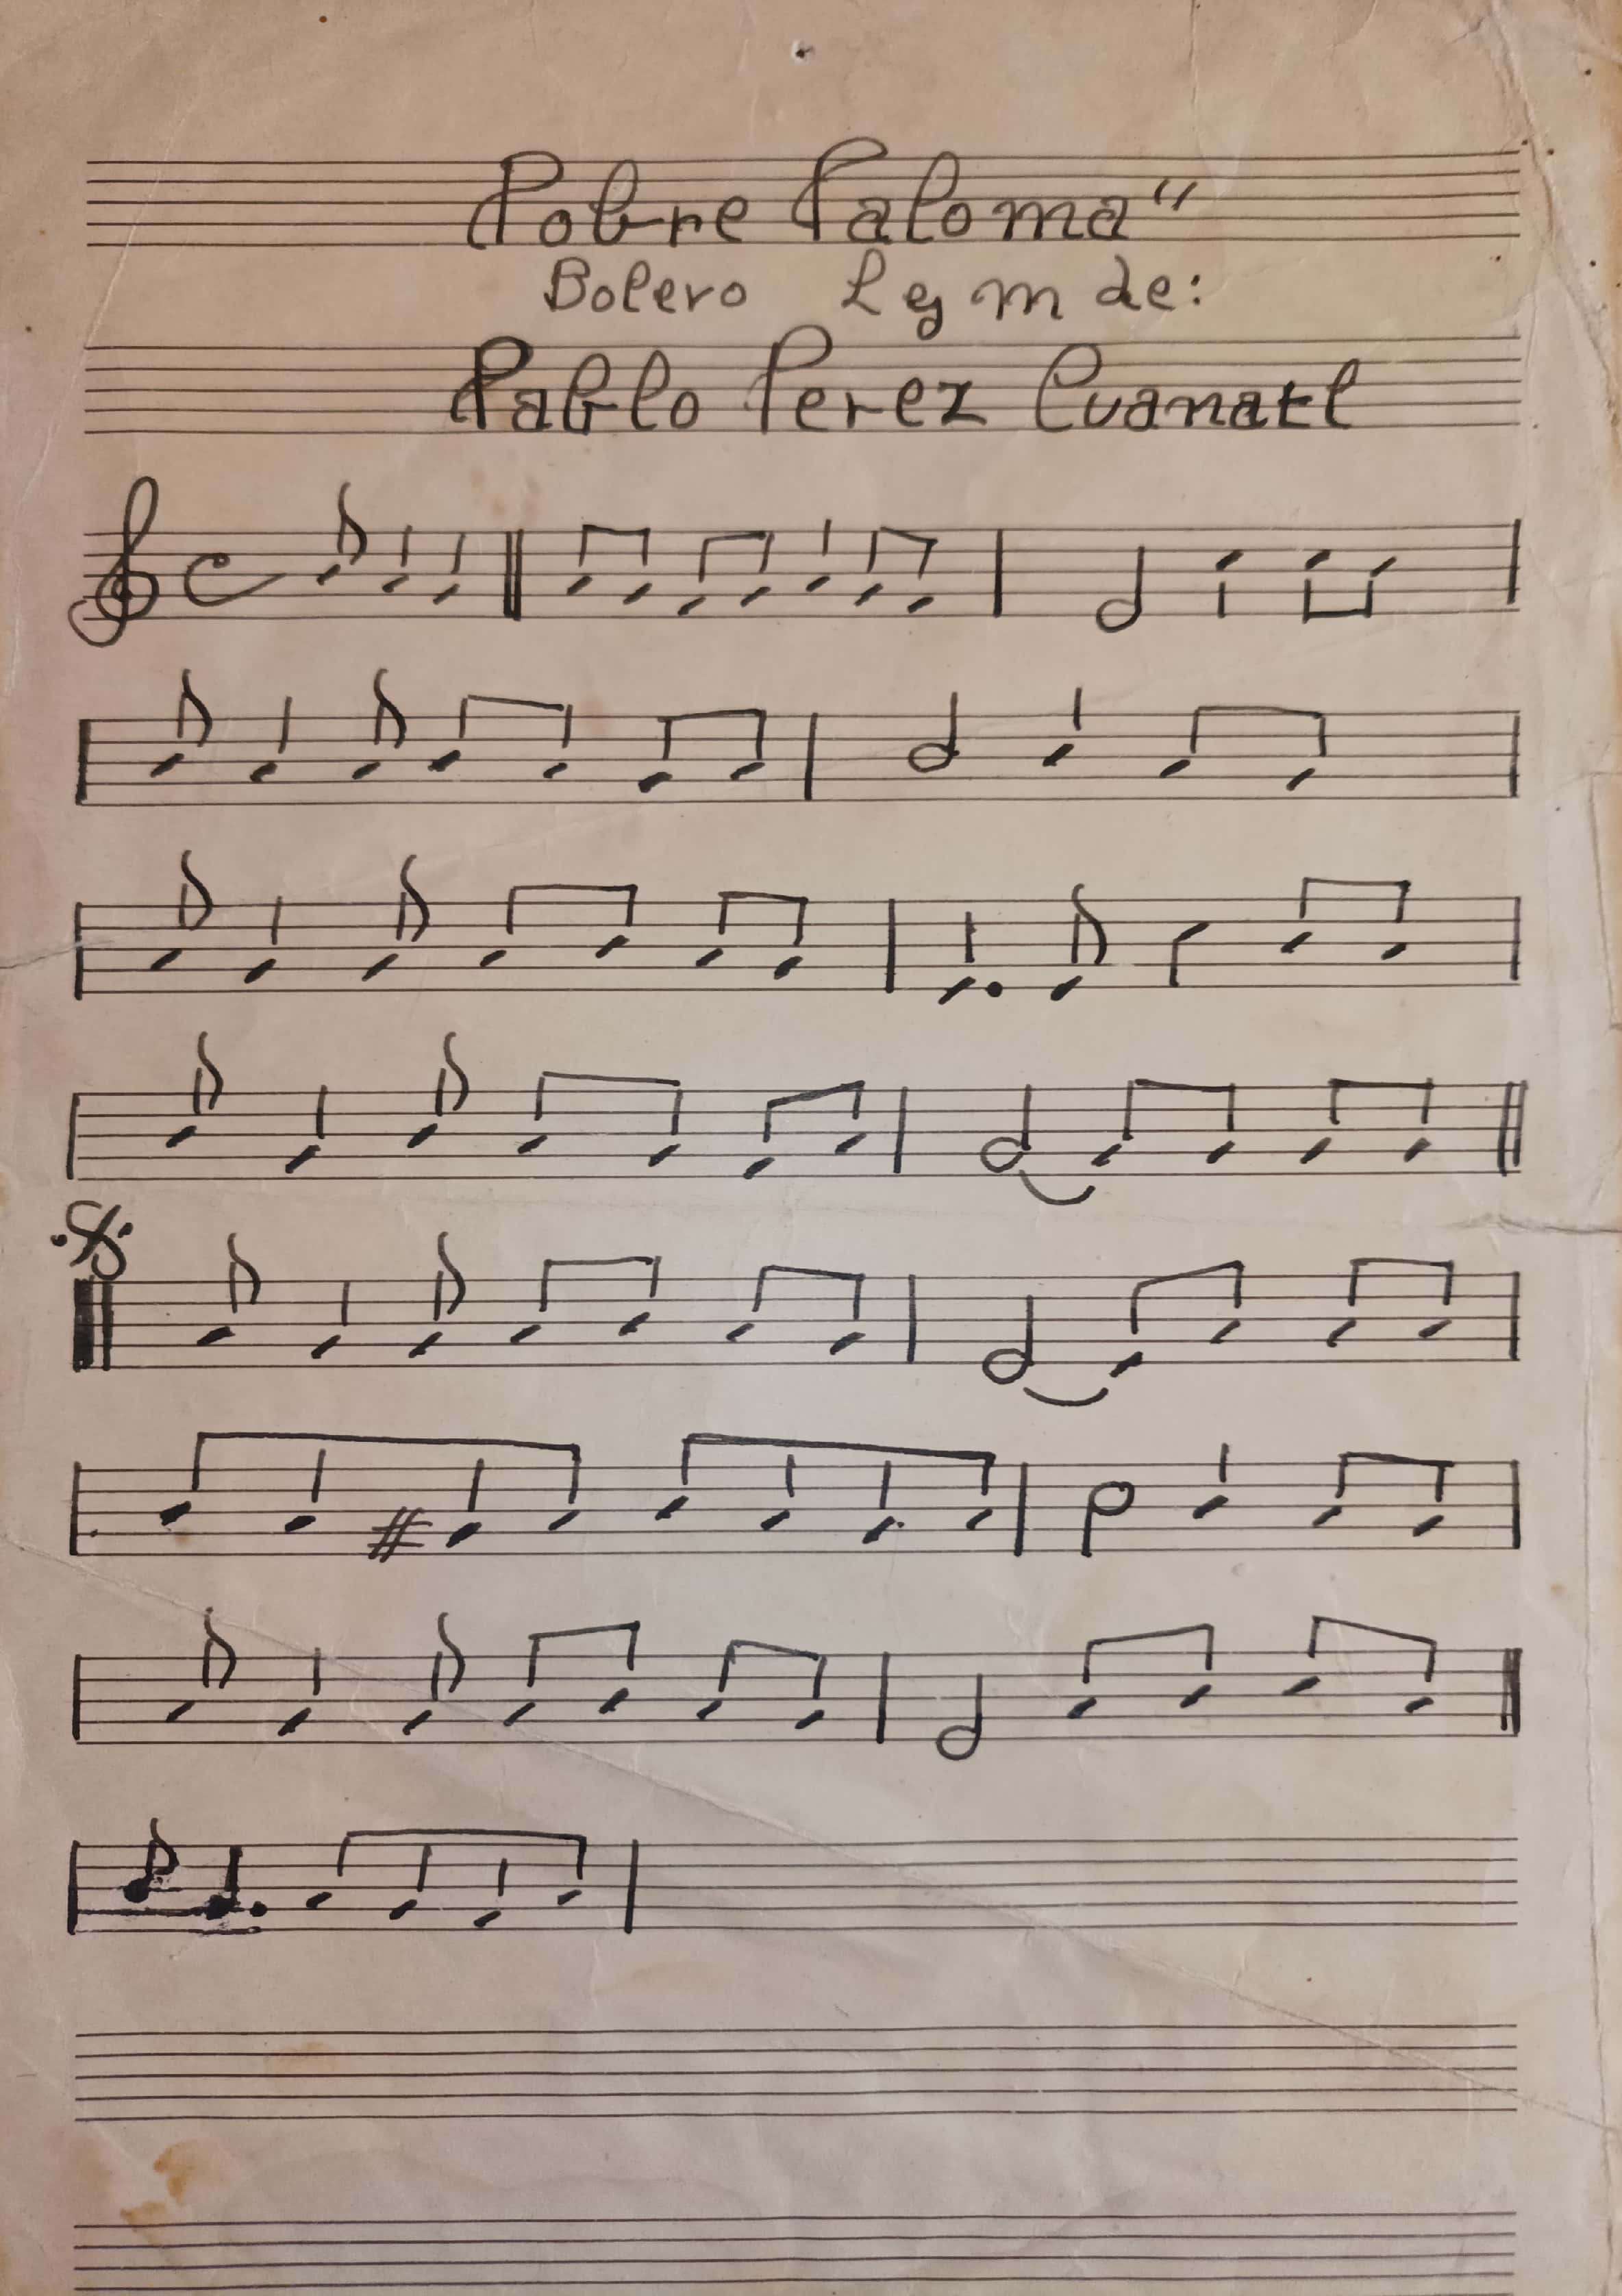 Pobre Paloma"
Bolero L y m de:
Pablo Perez Cuanatl